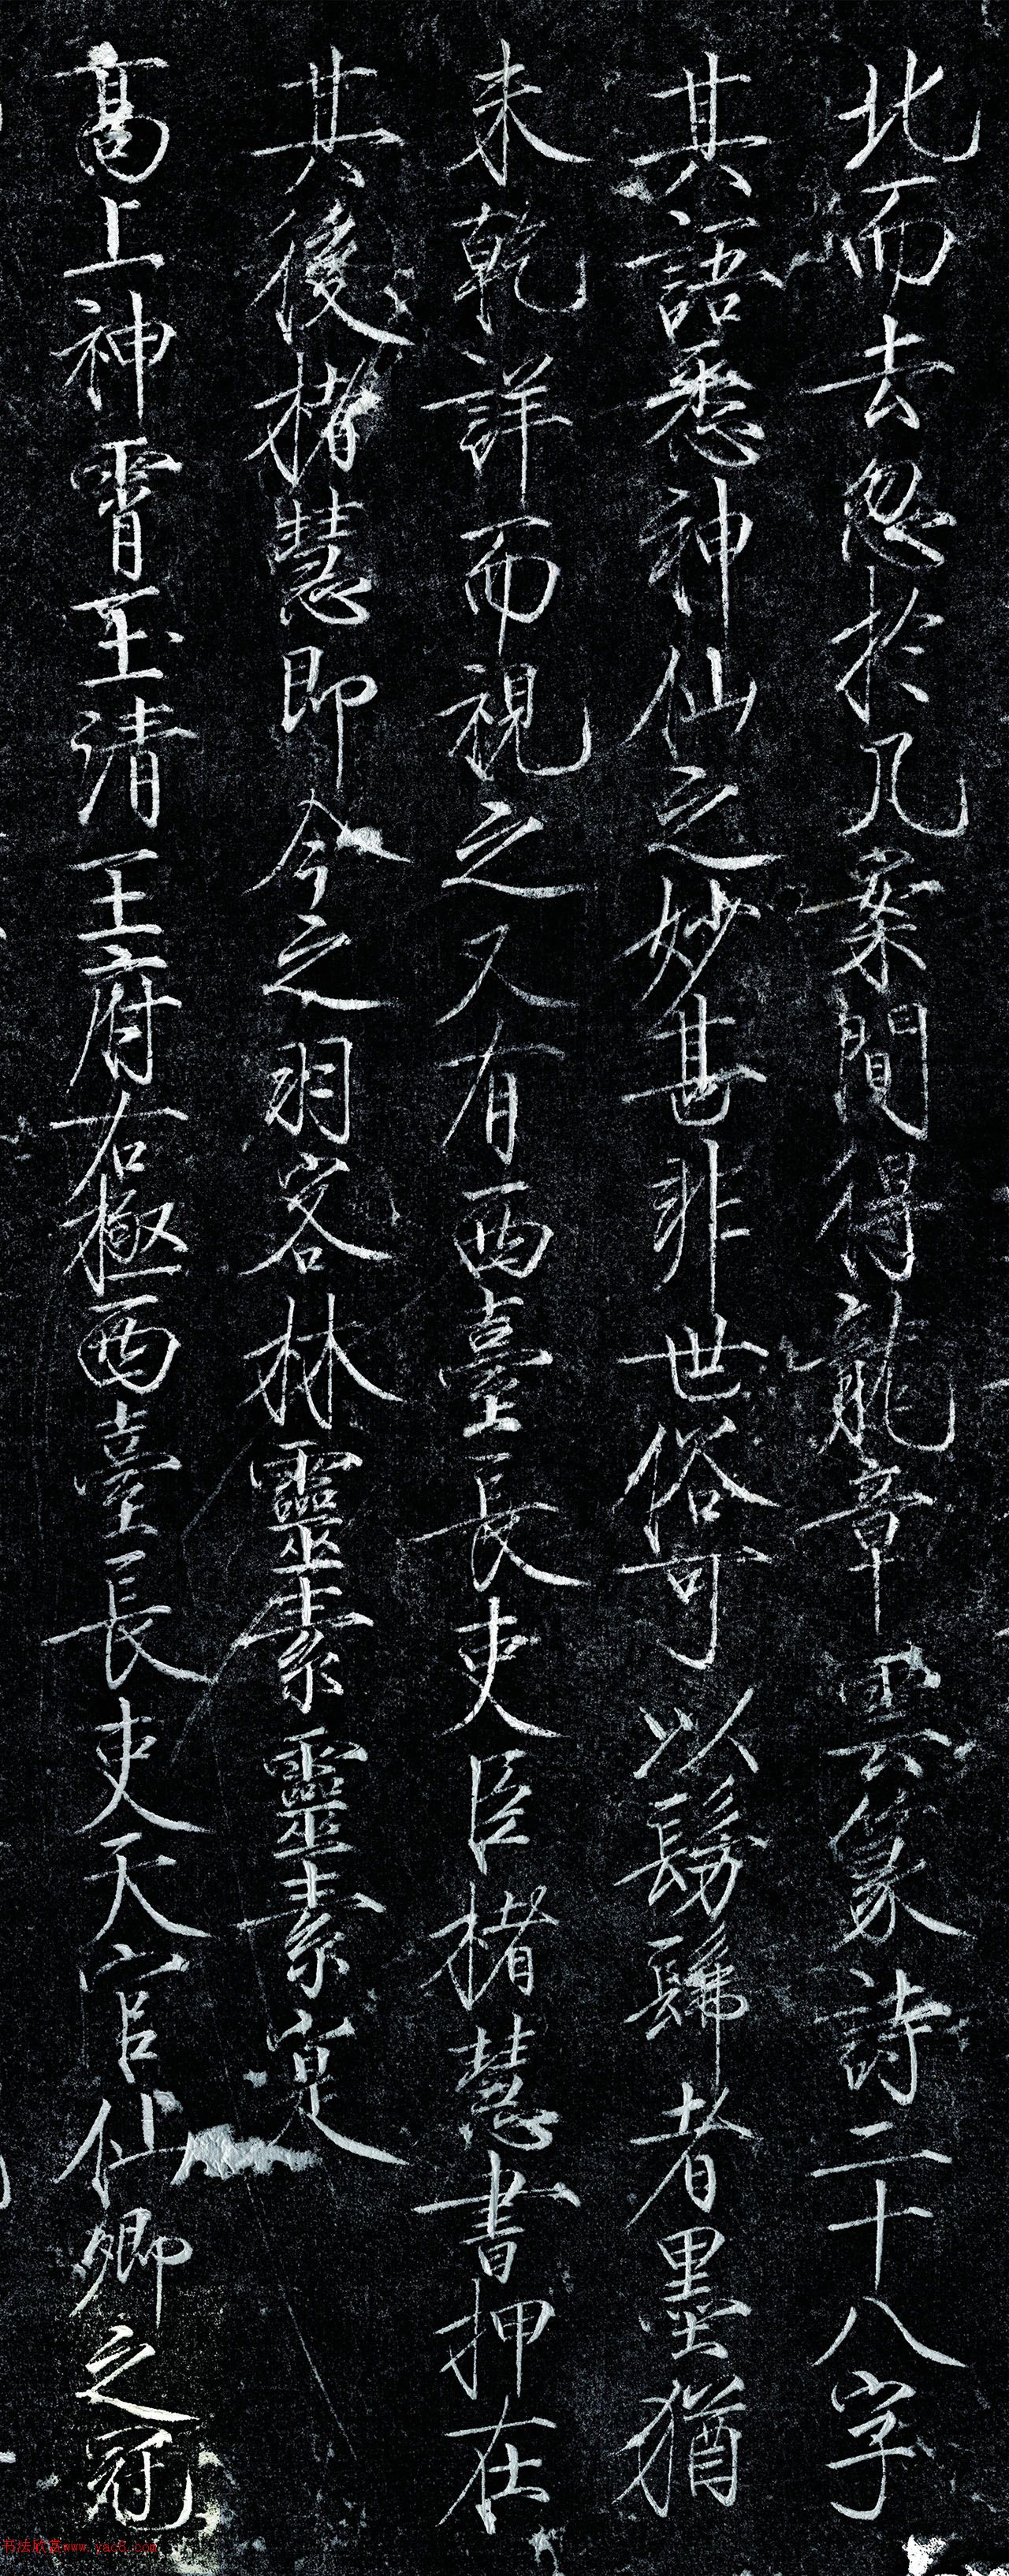 北而去忽於几案間得龍章雲篆詩二十八字
其語悉神仙之妙甚非世俗可以髣髴者墨猶
未乾詳而視之又有西臺長吏臣褚慧書押在
其後褚慧即今之羽客林靈素靈素寔
高上神霄玉清王府右極西臺長吏天官仙卿之冠
书法欣赏www.yac8.com